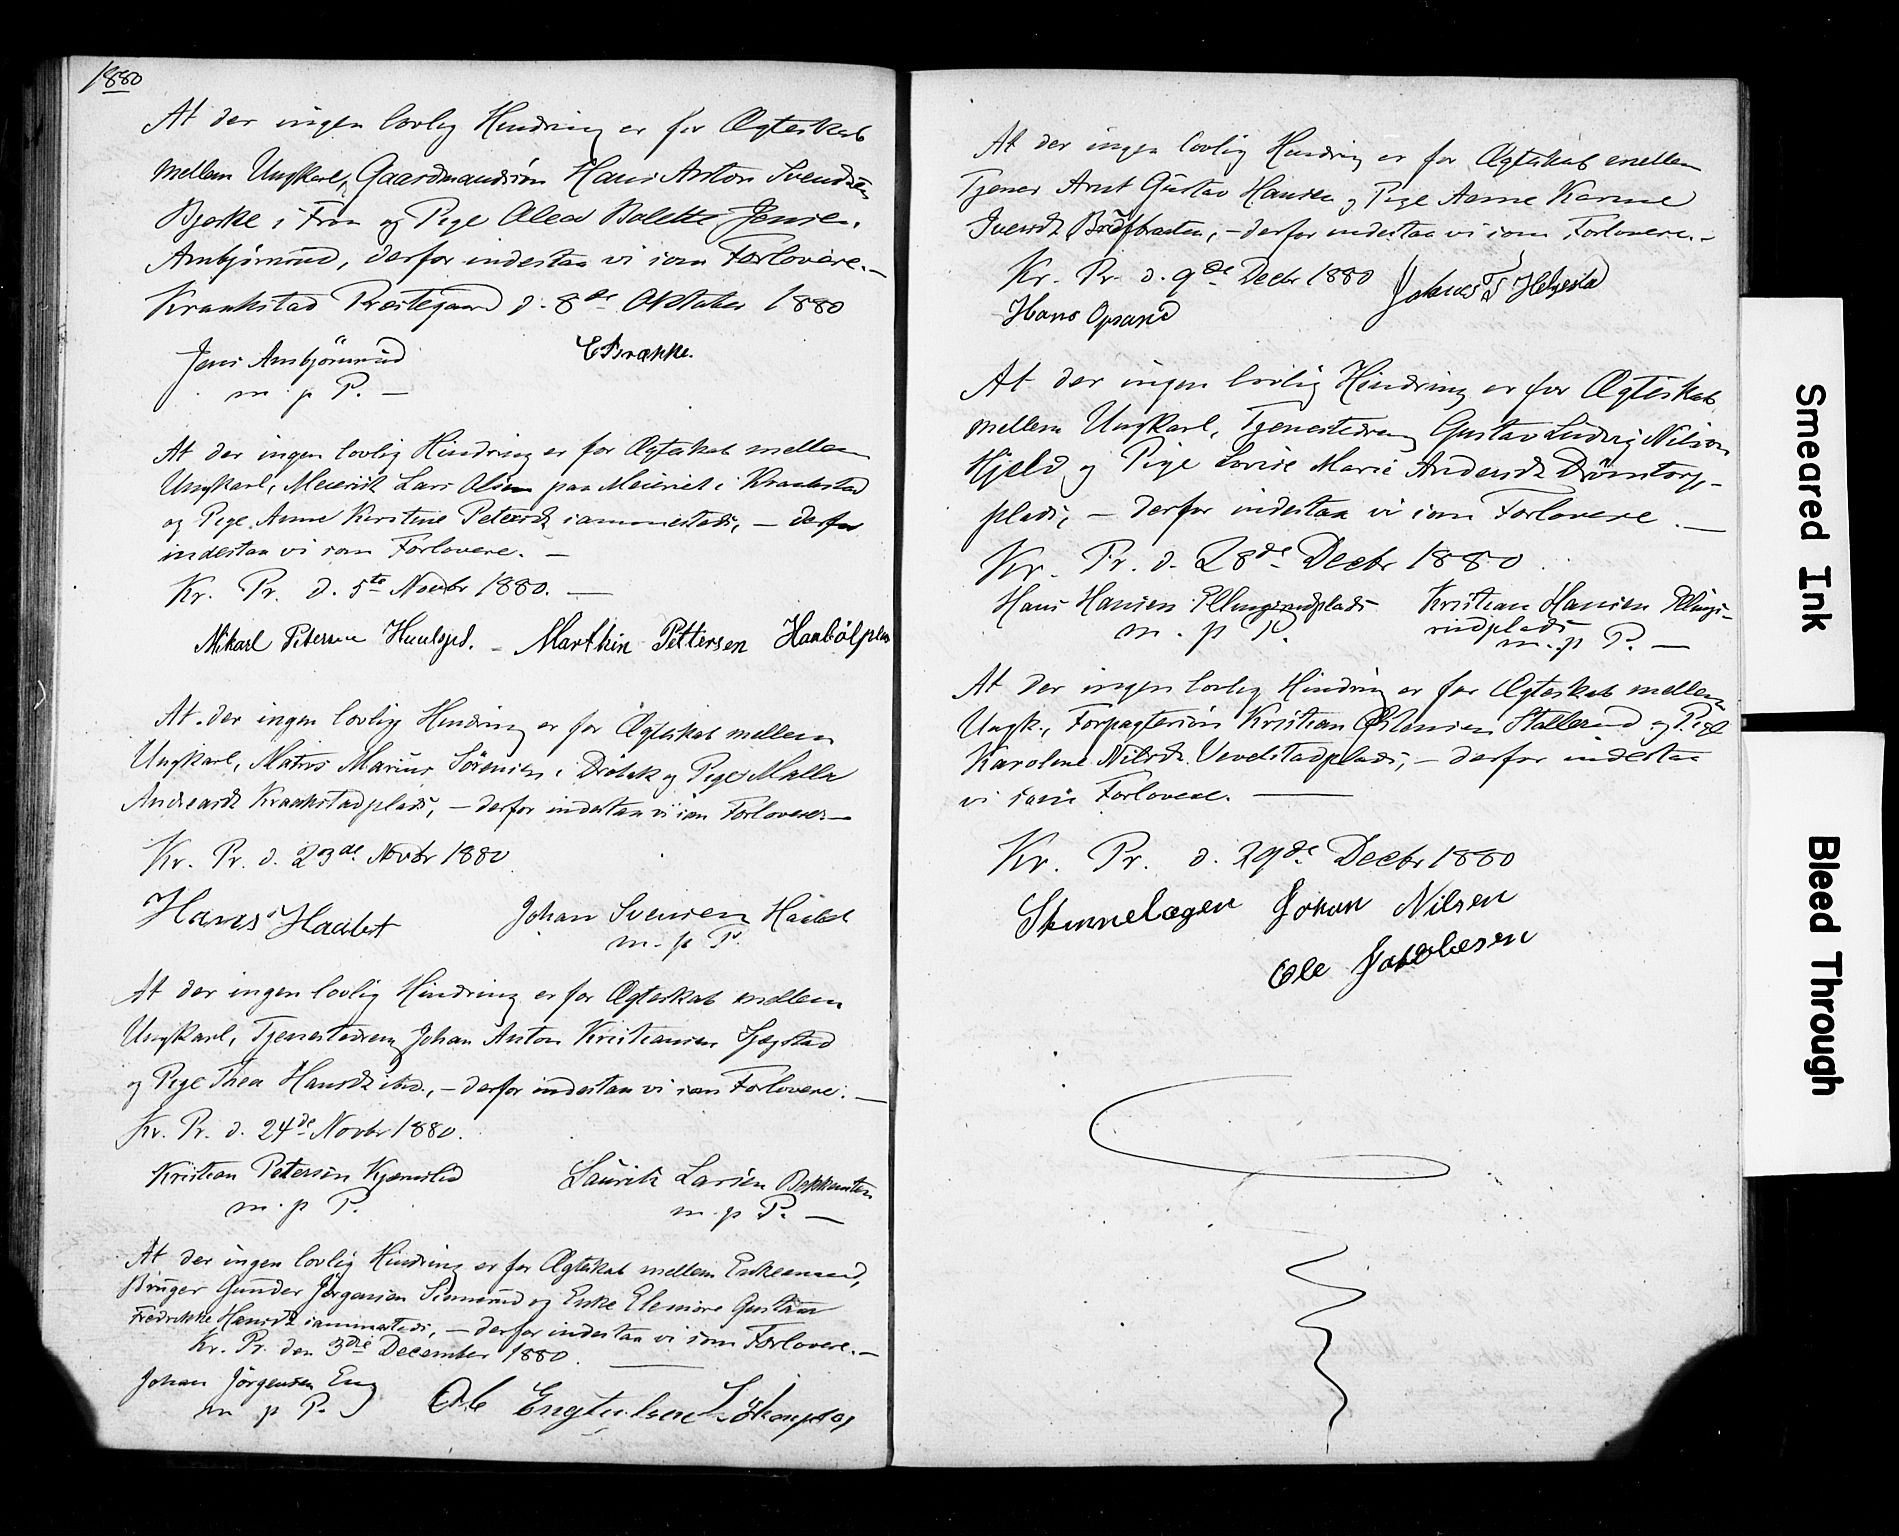 1880
At der ingen lovlig Hindring er for Ægteskab
mellem Ungkarl, Gaardmandsön Hans Anton Svendsen
Bjerke i Fron og Pige Olea Bolette Jens
Ambjörnrud, derfor indestaa vi som Forlovere.—
Kraakstad Præstegaard d. 8de Oktober 1880
Jens Ambjörnrud
m. p P. —
E Brække.
At der ingen lovlig Hindring er for Ægteskab mellem
Ungkarl, Meierist Lars Olsen paa Meieriet i Kraakstad
og Pige Anne Kirstine Petersdt sammesteds, — derfor
indestaa vi som Forlovere. —
Kr. Pr. d. 5te Novbr 1880. —
Mikael Petersen — Marthin Pettersen
At der ingen lovlig Hindring er for Ægteskab mellem
Ungkarl, Matros Marius Sörensen i Dröbak og Pige Malla
Andreasdt Kraakstadplads, — derfor indestaa vi som Forlovere —
Kr. Pr. d. 23de Novbr 1880
Hans Haabet
Johan Svensen
m. p P.
At der ingen lovlig Hindring er for Ægteskab mellem
Ungkarl, Tjenestedreng Johan Anton Kristiansen
og Pige Thea Hansdt ibd., — derfor indestaa vi som Forlovere. —
Kr. Pr. d. 24de Novbr 1880.
Kristian Petersen
m. p P.
Lauritz Larsen
m. p P. —
At der ingen lovlig Hindring er for Ægteskab mellem Enkemand,
Bruger Gunder Jörgensen og Enke Elenore Gustava
Fredrikke Hansdt sammesteds, — derfor indestaa vi som Forlovere. —
Kr. Pr. den 3die December 1880.
Johan Jörgensen Eng
m p P.
Ole
At der ingen lovlig Hindring er for Ægteskab mellem
Tjener Arnt Gustav Hansen og Pige Anne Karine
Iversdt, — derfor indestaa vi som Forlovere. —
Kr. Pr. d. 9de Decbr 1880
Hans Opsand
At der ingen lovlig Hindring er for Ægteskab
mellem Ungkarl, Tjenestedreng Gustav Ludvig Nilsen
Kjeld og Pige Lovise Marie Andersdt Drömtorp-
plads, — derfor indestaa vi som Forlovere. —
Kr. Pr. d. 28de Decbr 1880.
Hans Hansen Ellingsrudplads
m. p P.
Kristian Hansen Ellings-
rudplads
m. p P. —
At der ingen lovlig Hindring er for Ægteskab mellem
Ungk., Forpagtersön Kristian Stallerud og Pige
Karoline Nilsdt Vevelstadplads, — derfor indestaa
vi som Forlovere. —
Kr. Pr. d. 29de Decbr 1880
Skinnelægen Johan Nilsen
Ole Jakobsen
Smeared Ink
Bleed Through